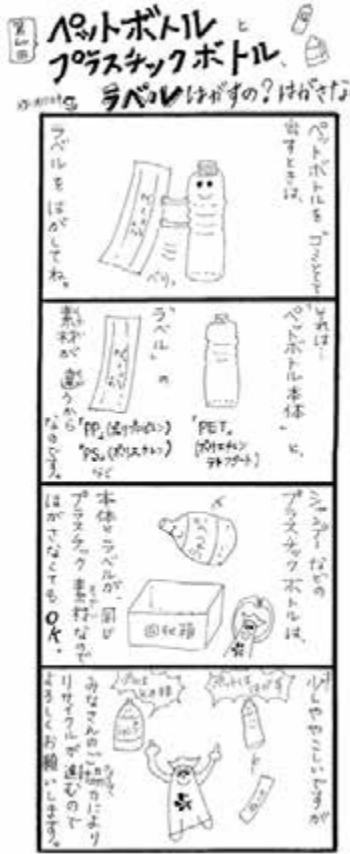 ペットボトルと
プラスチックボトル、
ラベルはがすの?はがさな
ペットボトルを
出すときは、
ラベルをはがしてね。
ベリッ
それは…
「ペットボトル本体」と、
「PET」
(ポリエチレン
テレフタレート)
「ラベル」の
「PP」(ポリプロピレン)
「PS」(ポリスチレン)
など
素材が違うから
なのです。
シャンプーなどの
プラスチックボトルは、
本体とラベルが、同じ
プラスチック素材なので
はがさなくてもOK。
回収箱
少しややこしいですが
ペットは
はがす
みなさんのご協力により
リサイクルが進むので
よろしくお願いします。